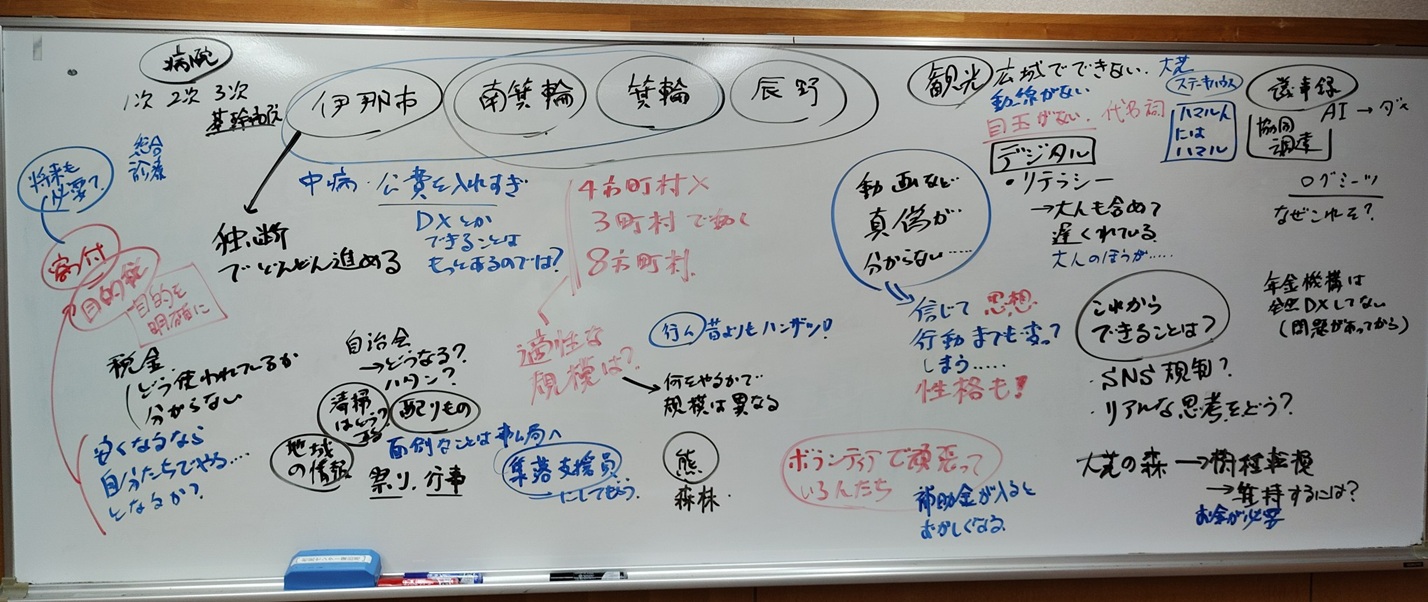 病院
1次 2次 3次
基幹病院
総合
診療
将来も
必要?
寄付
目的税
目的を
明確に
税金
どう使われているか
分からない
安くなるなら
自分たちでやる…
となるか?
伊那市
南箕輪
箕輪
辰野
独断
でどんどん進める
中病・公費を入れすぎ
DXとか
できることは
もっとあるのでは?
4市町村×
3町村で動く
8市町村
適性な
規模は?
何をやるかで
規模は異なる
自治会
→どうなる?
ハタン?
清掃
はどう?
配りもの
面倒なことは事ム局へ
地域
の情報
祭り、行事
集落支援員
にしてもらう
昔よりもハンザツ!
熊
森林
観光
広域でできない
動線がない
目玉がない、代名詞
大芝
ステーキハウス
ハマル人
には
ハマル
デジタル
・リテラシー
→大人も含めて
遅くれている
大人のほうが……
動画など
真偽が…
分からない……
信じて 思想
行動までも変って
しまう……
性格も!
これから
できることは?
・SNS 規制?
・リアルな思考をどう?
ボランティアで頑張って
いる人たち
補助金が入ると
おかしくなる
大芝の森→樹種転換
→維持するには?
お金が必要
議事録
AI→
協同
調達
ログミーツ
なぜこれぞ?
年金機構は
全然DXしてない
(問題があってから)